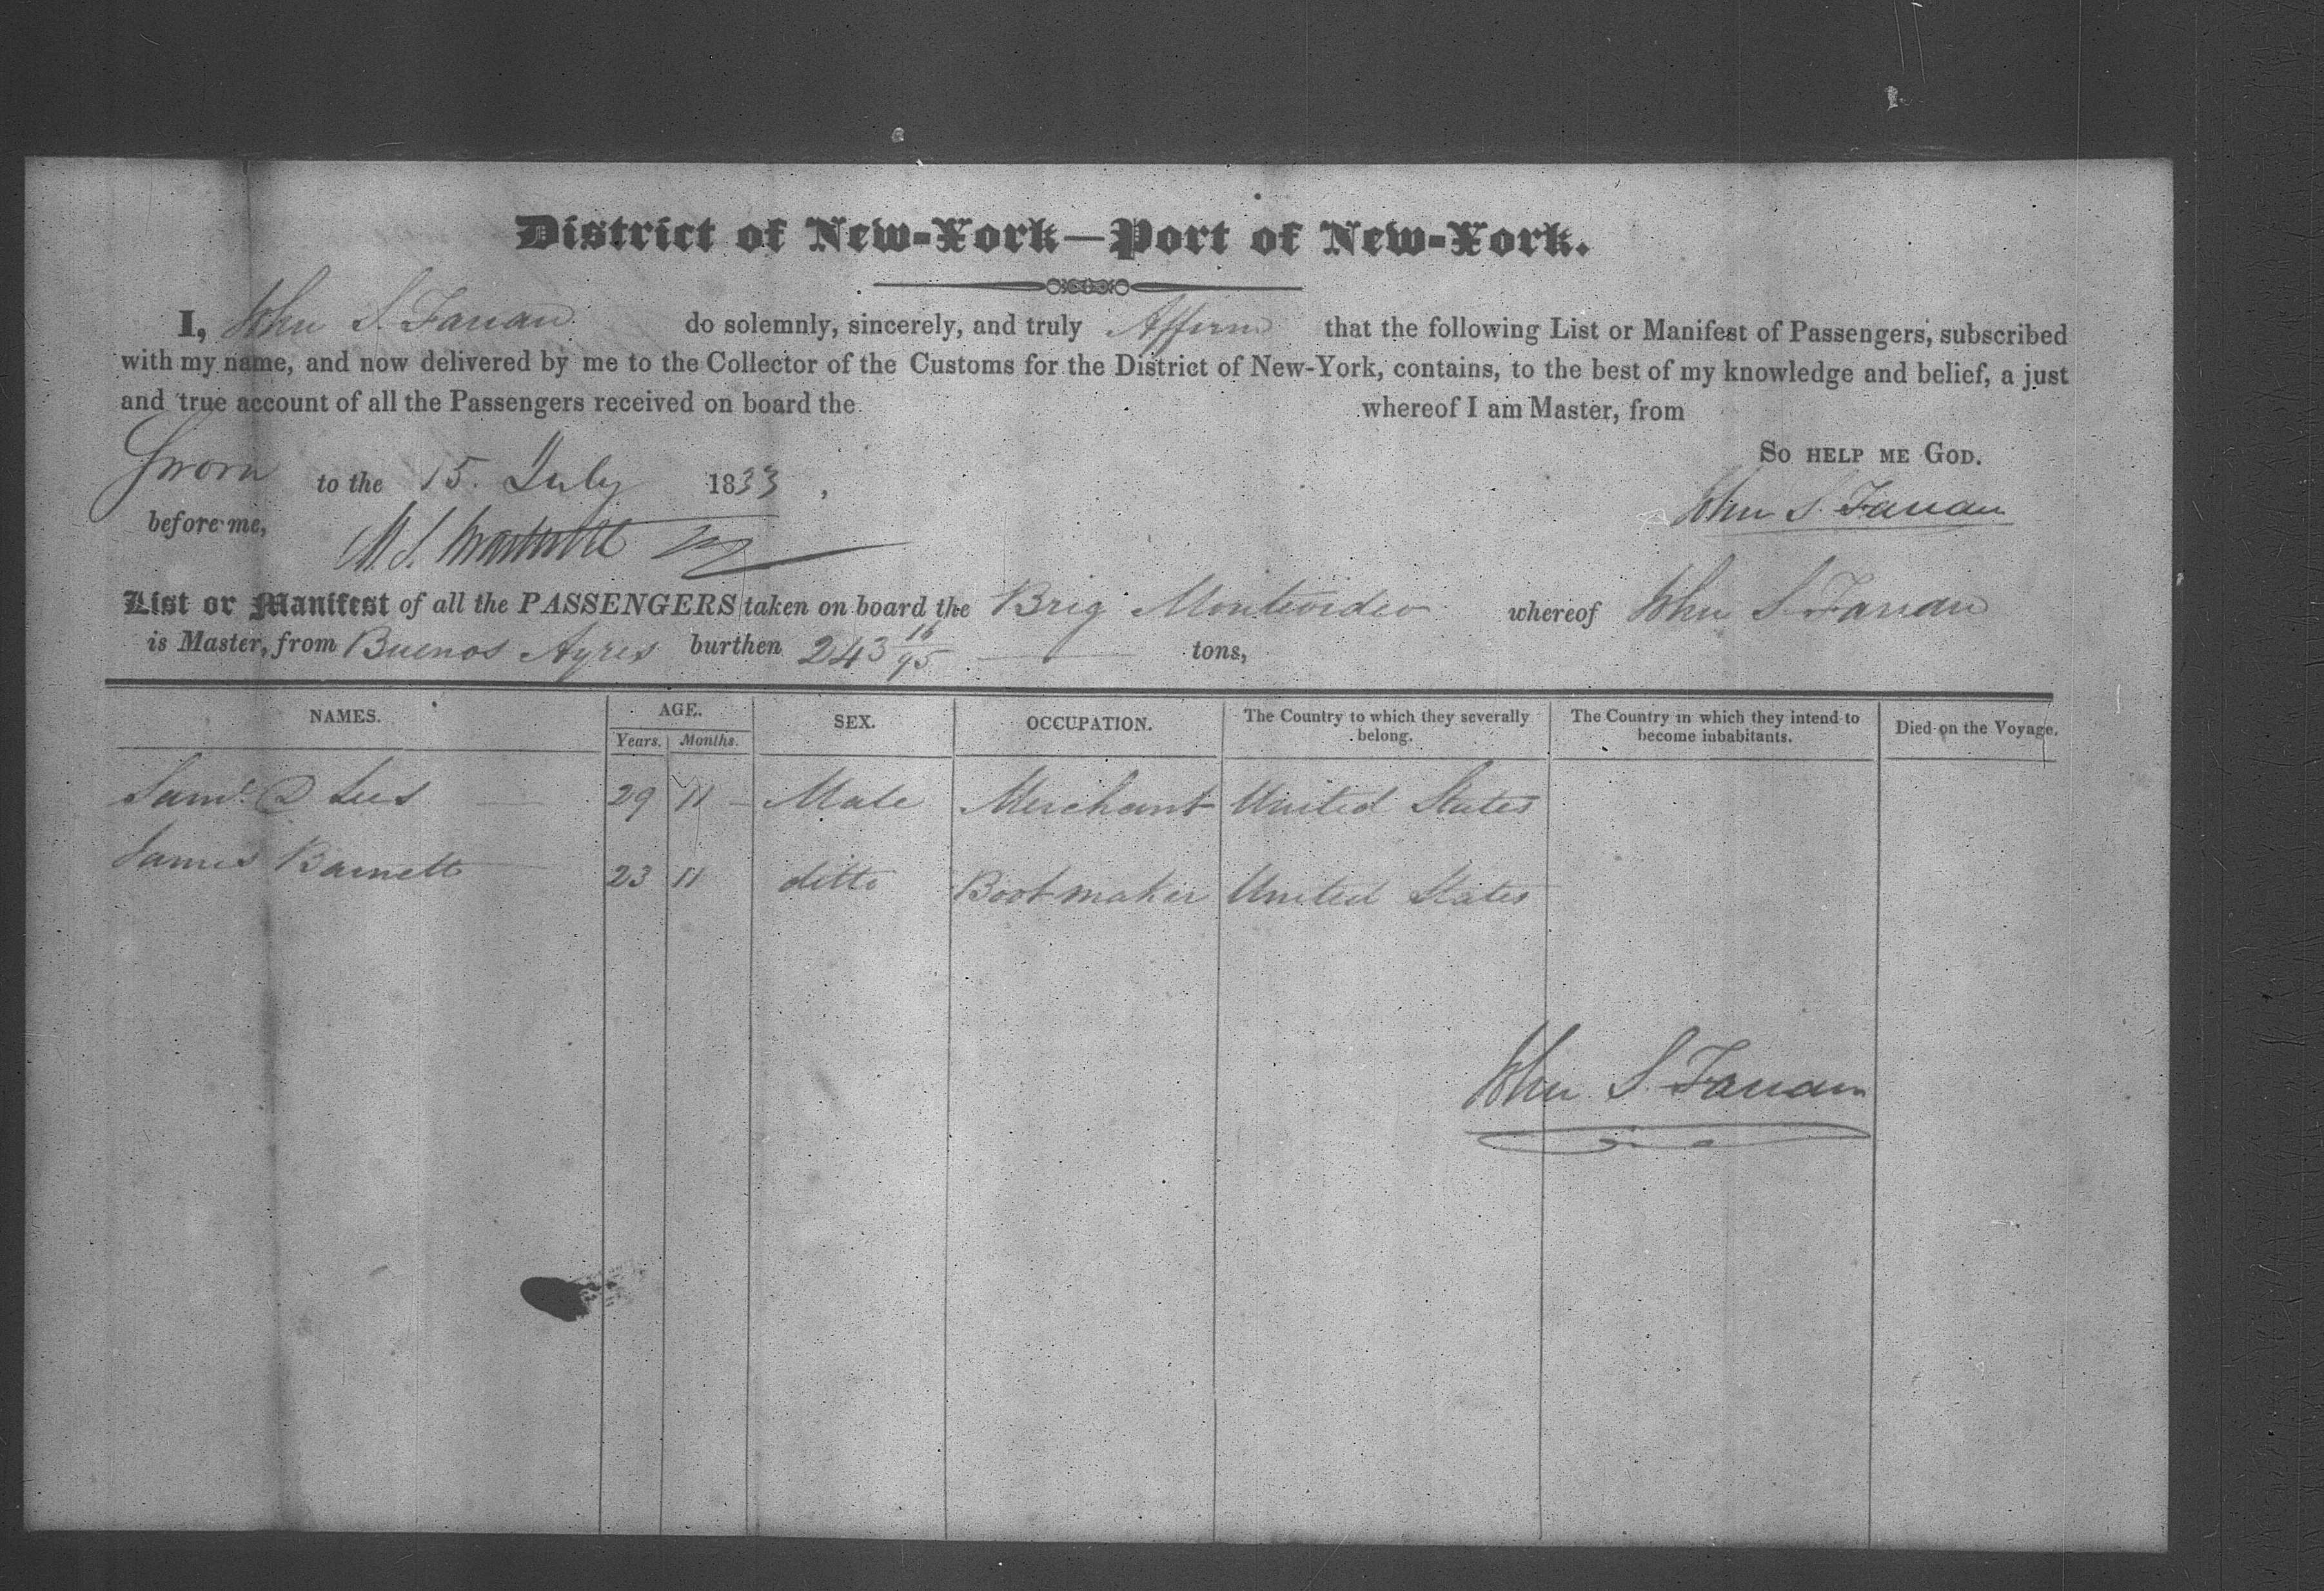 District of New-York—Port of New-York.
I, John S. Farran do solemnly, sincerely, and truly Affirm that the following List or Manifest of Passengers, subscribed
with my name, and now delivered by me to the Collector of the Customs for the District of New-York, contains, to the best of my knowledge and belief, a just
and true account of all the Passengers received on board the whereof I am Master, from
So help me God.
Sworn to the 15. July 1833
John S. Farran
before me,
List or Manifest of all the PASSENGERS taken on board the Brig Montevideo whereof John S. Farran
is Master, from Buenos Ayres burthen 243 16/95 tons,
NAMES. AGE. SEX. OCCUPATION. The Country to which they severally belong. The Country in which they intend to become inhabitants. Died on the Voyage.
Years. Months.
Saml. D Lees 29 11 Male Merchant United States
James Barnett 23 11 ditto Boot maker United States
John S. Farran